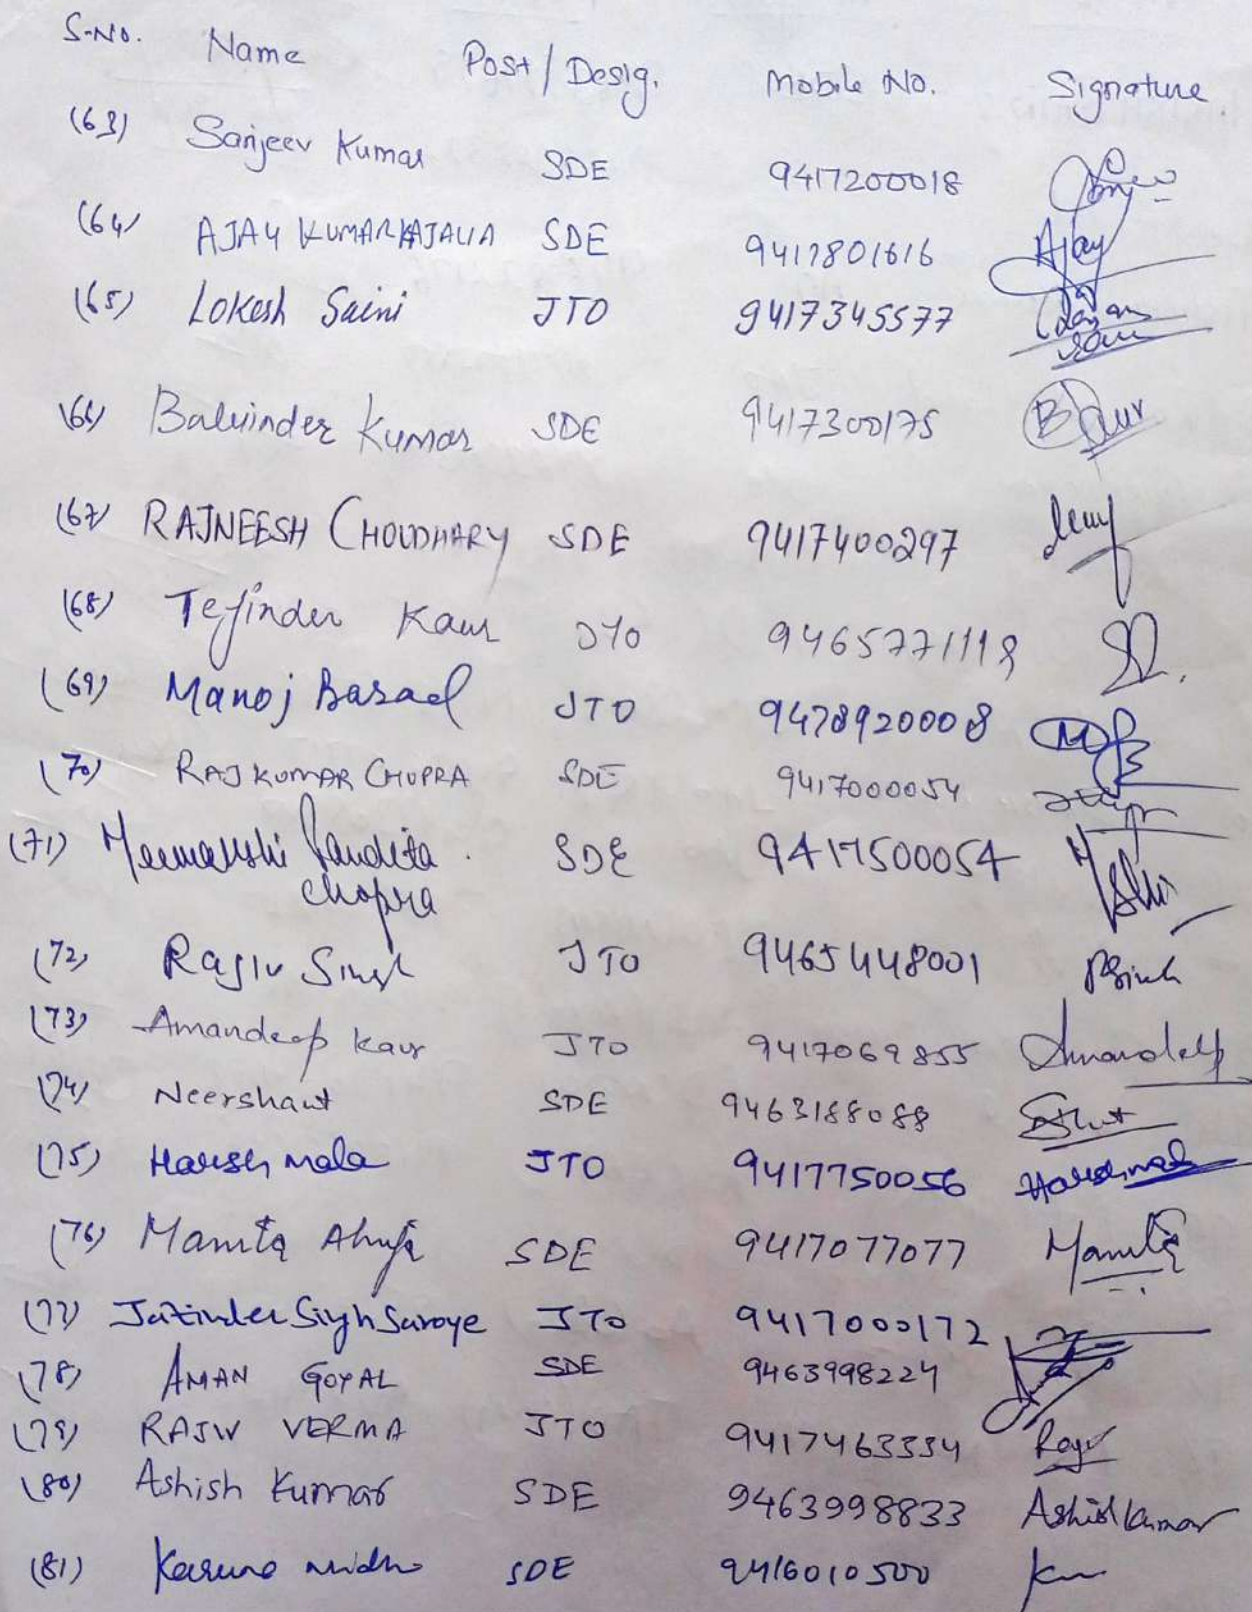 S.No. Name Post/Desig. Mobile No. Signature
(63) Sanjeev Kumar SDE 9417200018
(64) AJAY KUMAR KAJALIA SDE 9417801616 Ajay
(65) Lokesh Saini JTO 9417345577
(66) Balwinder Kumar SDE 9417300175
(67) RAJNEESH CHOUDHARY SDE 9417400297
(68) Tejinder Kaur JTO 9465771118
(69) Manoj Basael JTO 9478920008
(70) RAJ KUMAR CHOPRA SDE 9417000054
(71) Meemanshi Pandita SDE 9417500054
Chopra
(72) Rajiv Singh JTO 9465448001 RSingh
(73) Amandeep Kaur JTO 9417069855 Amandeep
(74) Neershant SDE 9463188088
(75) Harsh mala JTO 9417750056 Harshmala
(76) Mamta Ahuja SDE 9417077077 Mamta
(77) Jatinder Singh Saroye JTO 9417000172
(78) AMAN GOYAL SDE 9463998224
(79) RAJIV VERMA JTO 9417463334 Rajiv
(80) Ashish Kumar SDE 9463998833 Ashish Kumar
(81) Karuna midha SDE 9416010500